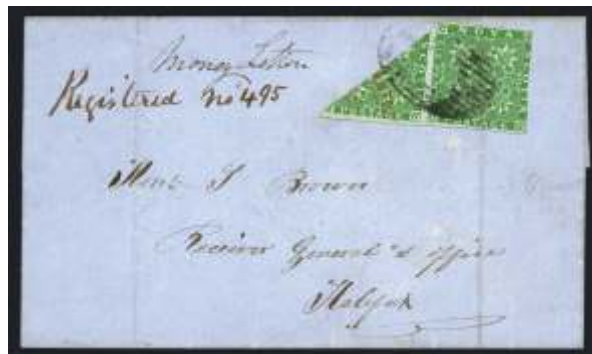 NOVA
Money Letter
Registered No 495
Hon. S Brown
Receiver General's office
Halifax